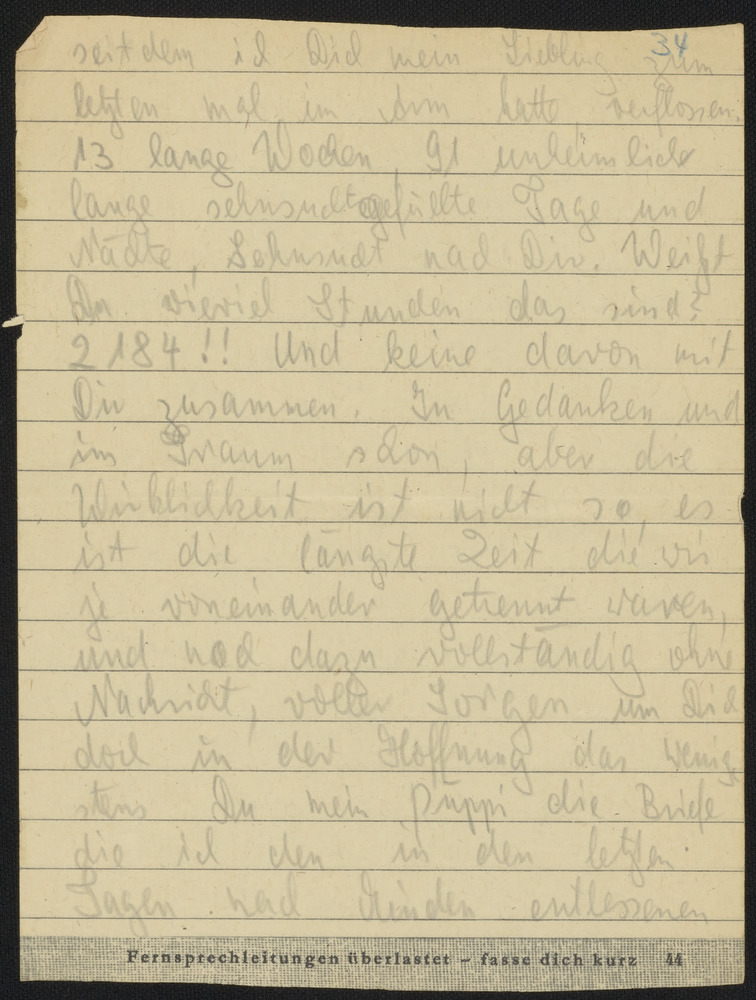 34
seitdem ich Dich mein Liebling zum
letzten mal im Arm hatte, verflossen.
13 lange Wochen, 91 unheimlich
lange sehnsuchtgefüllte Tage und
Nächte, Sehnsucht nach Dir. Weißt
Du wieviel Stunden das sind?
2184!! Und keine davon mit
Dir zusammen. In Gedanken und
im Traum schon, aber die
Wirklichkeit ist nicht so, es
ist die längste Zeit die wir
je voneinander getrennt waren,
und noch dazu vollständig ohne
Nachricht, voller Sorgen um Dich
doch in der Hoffnung das wenig
stens Du mein Puppi die Briefe
die ich den in den letzten
Tagen nach Minden entlassenen
Fernsprechleitungen überlastet – fasse dich kurz 44